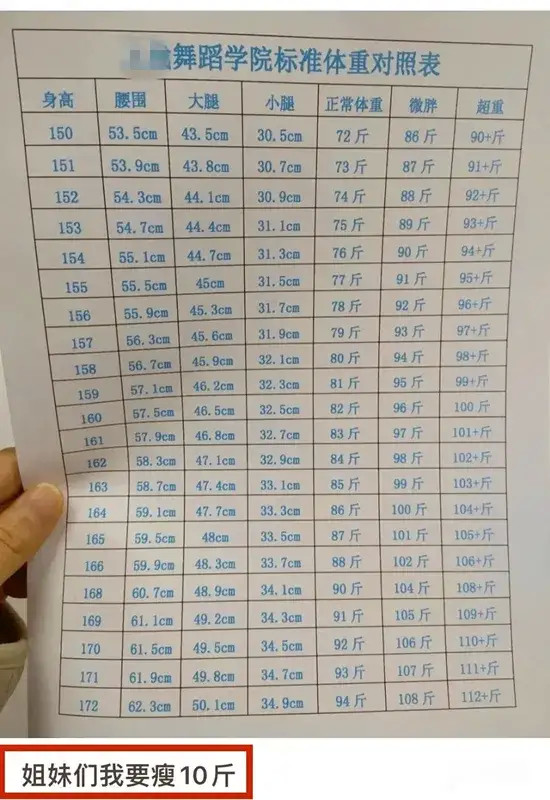 舞蹈学院标准体重对照表
身高 腰围 大腿 小腿 正常体重 微胖 超重
150 53.5cm 43.5cm 30.5cm 72斤 86斤 90+斤
151 53.9cm 43.8cm 30.7cm 73斤 87斤 91+斤
152 54.3cm 44.1cm 30.9cm 74斤 88斤 92+斤
153 54.7cm 44.4cm 31.1cm 75斤 89斤 93+斤
154 55.1cm 44.7cm 31.3cm 76斤 90斤 94+斤
155 55.5cm 45cm 31.5cm 77斤 91斤 95+斤
156 55.9cm 45.3cm 31.7cm 78斤 92斤 96+斤
157 56.3cm 45.6cm 31.9cm 79斤 93斤 97+斤
158 56.7cm 45.9cm 32.1cm 80斤 94斤 98+斤
159 57.1cm 46.2cm 32.3cm 81斤 95斤 99+斤
160 57.5cm 46.5cm 32.5cm 82斤 96斤 100斤
161 57.9cm 46.8cm 32.7cm 83斤 97斤 101+斤
162 58.3cm 47.1cm 32.9cm 84斤 98斤 102+斤
163 58.7cm 47.4cm 33.1cm 85斤 99斤 103+斤
164 59.1cm 47.7cm 33.3cm 86斤 100斤 104+斤
165 59.5cm 48cm 33.5cm 87斤 101斤 105+斤
166 59.9cm 48.3cm 33.7cm 88斤 102斤 106+斤
168 60.7cm 48.9cm 34.1cm 90斤 104斤 108+斤
169 61.1cm 49.2cm 34.3cm 91斤 105斤 109+斤
170 61.5cm 49.5cm 34.5cm 92斤 106斤 110+斤
171 61.9cm 49.8cm 34.7cm 93斤 107斤 111+斤
172 62.3cm 50.1cm 34.9cm 94斤 108斤 112+斤
姐妹们我要瘦10斤